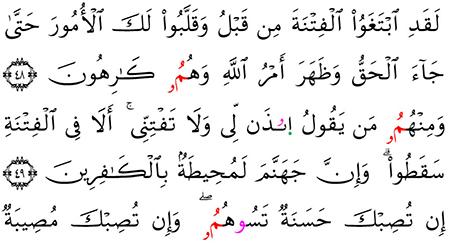 لَقَدِ ٱبْتَغَوُاْ ٱلْفِتْنَةَ مِن قَبْلُ وَقَلَّبُواْ لَكَ ٱلْأُمُورَ حَتَّىٰ
جَآءَ ٱلْحَقُّ وَظَهَرَ أَمْرُ ٱللَّهِ وَهُمُۥ كَٰرِهُونَ ٤٨
وَمِنْهُمُۥ مَن يَقُولُ ٱئْذَن لِّى وَلَا تَفْتِنِّىٓ ۚ أَلَا فِى ٱلْفِتْنَةِ
سَقَطُواْ ۗ وَإِنَّ جَهَنَّمَ لَمُحِيطَةٌۢ بِٱلْكَٰفِرِينَ ٤٩
إِن تُصِبْكَ حَسَنَةٌ تَسُوهُمُۥ ۖ وَإِن تُصِبْكَ مُصِيبَةٌ